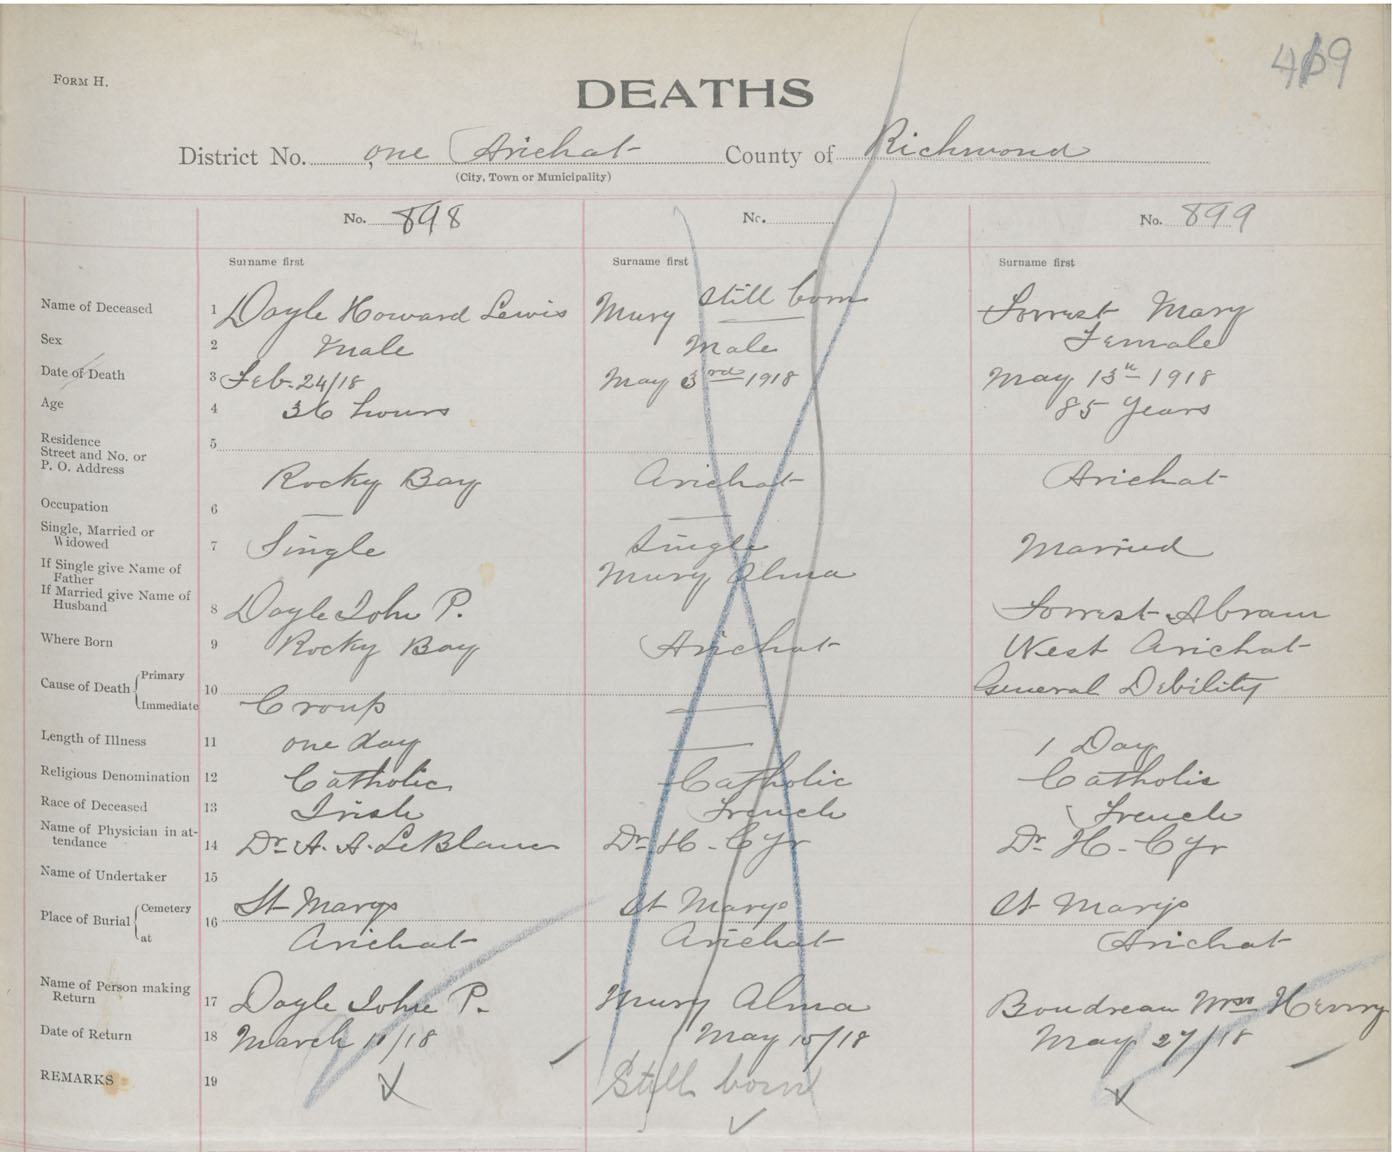 FORM H.
DEATHS
District No. one Arichat County of Richmond
(City, Town or Municipality)
No. 898 No. No. 899
Surname first Surname first Surname first
Name of Deceased 1 Doyle Howard Lewis Mury Still born Forrest Mary
Sex 2 Male Male Female
Date of Death 3 Feb. 24/18 May 3rd 1918 May 13th 1918
Age 4 36 hours 85 Years
Residence
Street and No. or
P. O. Address 5 Rocky Bay Arichat Arichat
Occupation 6 — —
Single, Married or
Widowed 7 Single Single Married
If Single give Name of
Father
If Married give Name of
Husband 8 Doyle John P. Mury Alma Forrest Abram
Where Born 9 Rocky Bay Arichat West Arichat
Cause of Death Primary
Immediate 10 Croup — General Debility
Length of Illness 11 one day — 1 Day
Religious Denomination 12 Catholic Catholic Catholic
Race of Deceased 13 Irish French French
Name of Physician in at-
tendance 14 Dr. A. A. LeBlanc Dr. H. Cyr Dr. H. Cyr
Name of Undertaker 15
Place of Burial Cemetery 16 St Marys St Marys St Marys
at Arichat Arichat Arichat
Name of Person making
Return 17 Doyle John P. Mury Alma Boudreau Mrs Henry
Date of Return 18 March 11/18 May 15/18 May 27/18
REMARKS 19 Still born